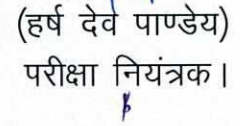 (हर्ष देव पाण्डेय)
परीक्षा नियंत्रक।